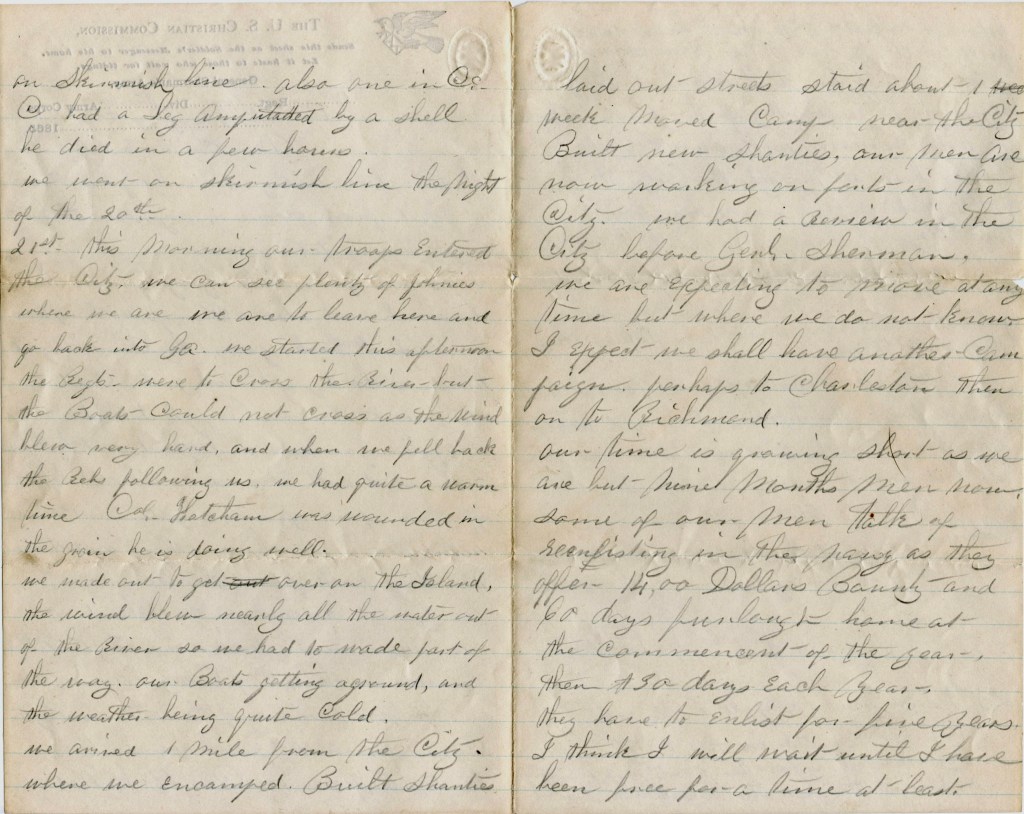 on Skirmish line. also one in Co.
D had a Leg Amputated by a shell
he died in a few hours.
we went on skirmish line the Night
of the 20th.
21st. this Morning our troops Entered
the City. we can see plenty of Johnies
where we are we are to leave here and
go back into Ga. we started this afternoon
the Regts. were to Cross the River but
the Boats Could not cross as the wind
blew very hard. and when we fell back
the Rebs following us. we had quite a warm
time Col. was wounded in
the groin he is doing well.
we made out to get out over on the Island.
the wind blew nearly all the water out
of the River so we had to wade part of
the way. our Boats getting aground, and
the weather being quite Cold.
we arived 1 mile from the City.
where we encamped. Built Shanties
laid out streets staid about 1
week Moved Camp near the City
Built new shanties, our Men are
now working on forts in the
City. we had a Review in the
City before Genl. Sherman.
we are Expecting to move at any
time but where we do not know
I Expect we shall have another Cam
paign. perhaps to Charleston then
on to Richmond.
our time is growing short as we
are but Nine Months Men now.
some of our Men talk of
reenlisting in the navy as they
offer 14,00 Dollars Bounty and
60 days furlough home at
the commencent of the year.
then 30 days Each Year.
they have to Enlist for five years.
I think I will wait until I have
been free for a time at least.
THE U. S. CHRISTIAN COMMISSION.